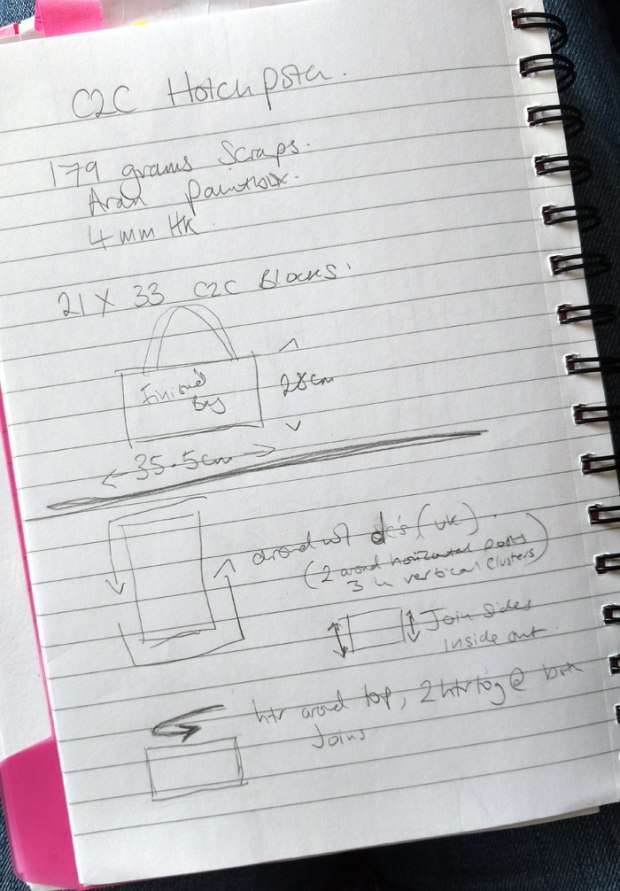 C2C Hotchpotch.
179 grams Scraps.
Aran Paintbox.
4mm HK.
21 X 33 C2C Blocks.
Finished
Bag
28cm
35.5cm
around w/ dc's (UK).
(2 around horizontal
3 in vertical clusters)
Join sides
inside out.
htr around top, 2htrtog @ both
Joins